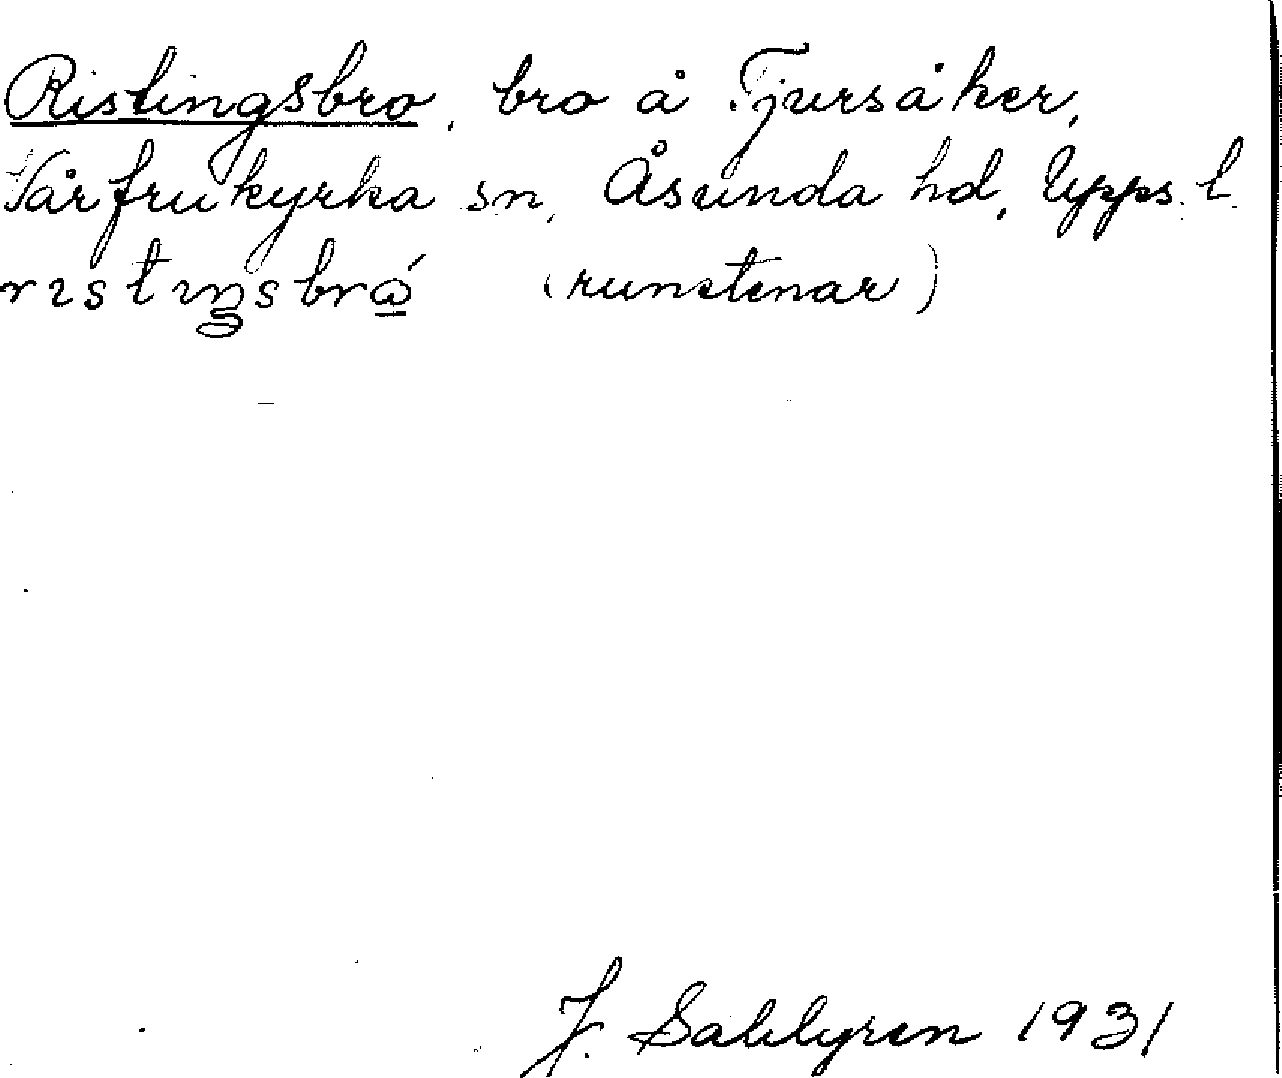 Ristingsbro, bro å Tjursåker,
Vårfrukyrka sn, Åsunda hd, Upps. l.
ristiŋsbrώ̲ (runstenar)
J. Sahlgren 1931